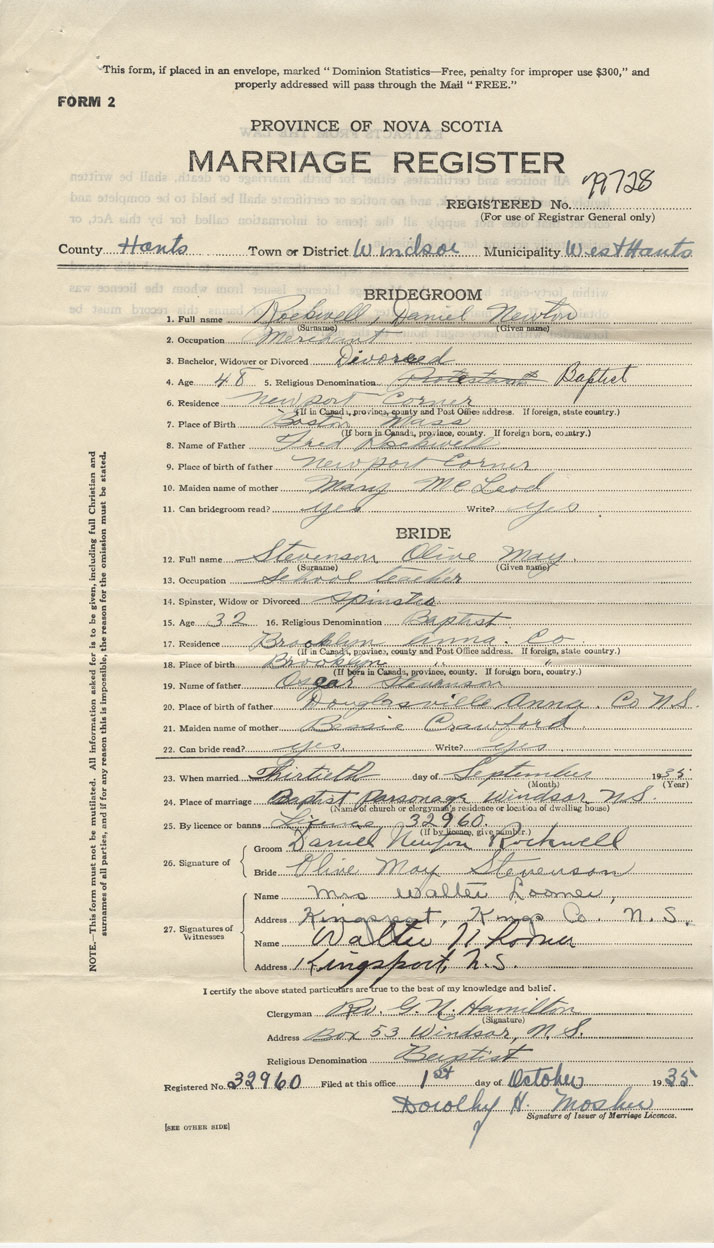 "This form, if placed in an envelope, marked "Dominion Statistics—Free, penalty for improper use $300," and
properly addressed will pass through the Mail "FREE."
FORM 2
PROVINCE OF NOVA SCOTIA
MARRIAGE REGISTER
REGISTERED No. 79728
(For use of Registrar General only)
County Hants Town or District Windsor Municipality West Hants
BRIDEGROOM
1. Full name Rockwell, Daniel Newton
(Surname) (Given name)
2. Occupation Merchant
3. Bachelor, Widower or Divorced Divorced
4. Age 48 5. Religious Denomination Protestant Baptist
6. Residence Newport Corner
(If in Canada, province, county and Post Office address. If foreign, state country.)
7. Place of Birth Boston Mass
(If born in Canada, province, county. If foreign born, country.)
8. Name of Father Fred Rockwell
9. Place of birth of father Newport Corner
10. Maiden name of mother Mary McLeod
11. Can bridegroom read? yes Write? yes
BRIDE
12. Full name Stevenson Olive May.
(Surname) (Given name)
13. Occupation School teacher
14. Spinster, Widow or Divorced Spinster
15. Age 32 16. Religious Denomination Baptist
17. Residence Brooklyn Anna. Co
(If in Canada, province, county and Post Office address. If foreign, state country.)
18. Place of birth Brooklyn " "
(If born in Canada, province, county. If foreign born, country.)
19. Name of father Oscar Stevenson
20. Place of birth of father Douglasville Anna. Co N.S.
21. Maiden name of mother Bessie Crawford
22. Can bride read? yes Write? yes
23. When married Thirtieth day of September 1935
(Month) (Year)
24. Place of marriage Baptist Parsonage Windsor N.S.
(Name of church or clergyman's residence or location of dwelling house)
25. By licence or banns Licence 32960.
(If by licence, give number.)
26. Signature of
Groom Daniel Newton Rockwell
Bride Olive May Stevenson
27. Signatures of Witnesses
Name Mrs Walter Loomer,
Address Kingsport, Kings Co. N.S.
Name Walter N Loomer
Address Kingsport, N.S.
I certify the above stated particulars are true to the best of my knowledge and belief.
Clergyman Rev. G. N. Hamilton
(Signature)
Address Box 53 Windsor, N.S.
Religious Denomination Baptist
Registered No. 32960 Filed at this office 1st day of October 1935
Dorothy H. Mosher
Signature of Issuer of Marriage Licences.
[SEE OTHER SIDE]
NOTE.—This form must not be mutilated. All information asked for is to be given, including full Christian and
surnames of all parties, and if for any reason this is impossible, the reason for the omission must be stated.